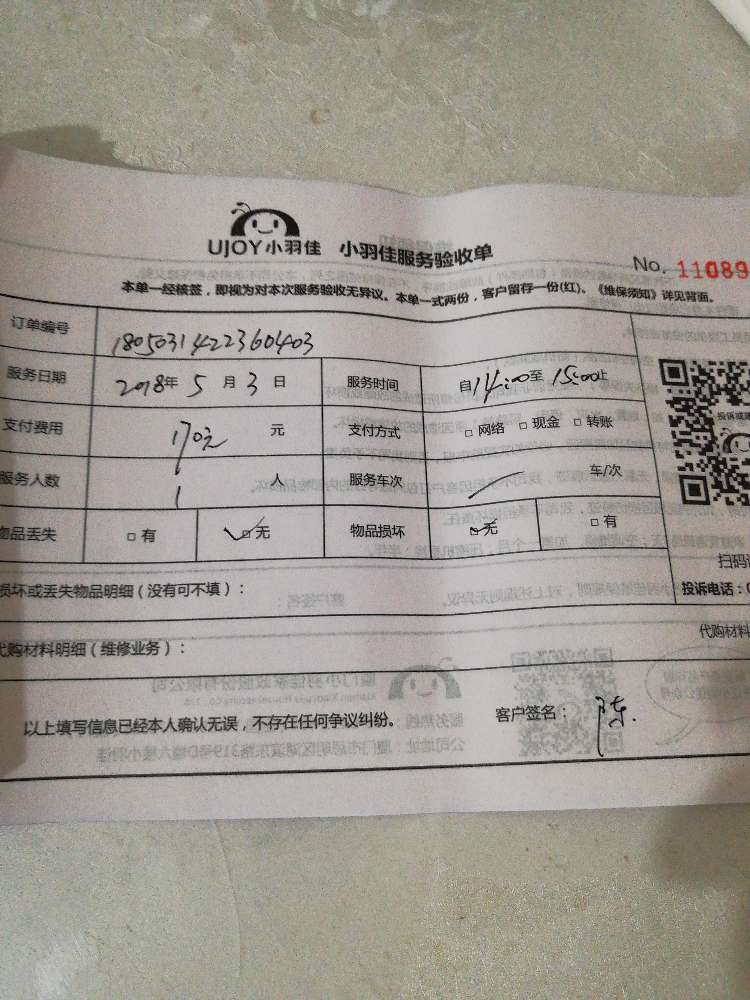 UJOY小羽佳 小羽佳服务验收单
No. 11089
本单一经核签，即视为对本次服务验收无异议。本单一式两份，客户留存一份(红)。《维保须知》详见背面。
订单编号 1805031422360403
服务日期 2018年 5 月 3 日 服务时间 自14:00至15:00止
支付费用 170元 元 支付方式 □网络 □现金 □转账
服务人数 1 人 服务车次 车/次
物品丢失 □有 □无 物品损坏 □无 □有
损坏或丢失物品明细（没有可不填）：
扫码
投诉电话：0
代购材料明细（维修业务）：
代购材料
以上填写信息已经本人确认无误，不存在任何争议纠纷。 客户签名： 陈.